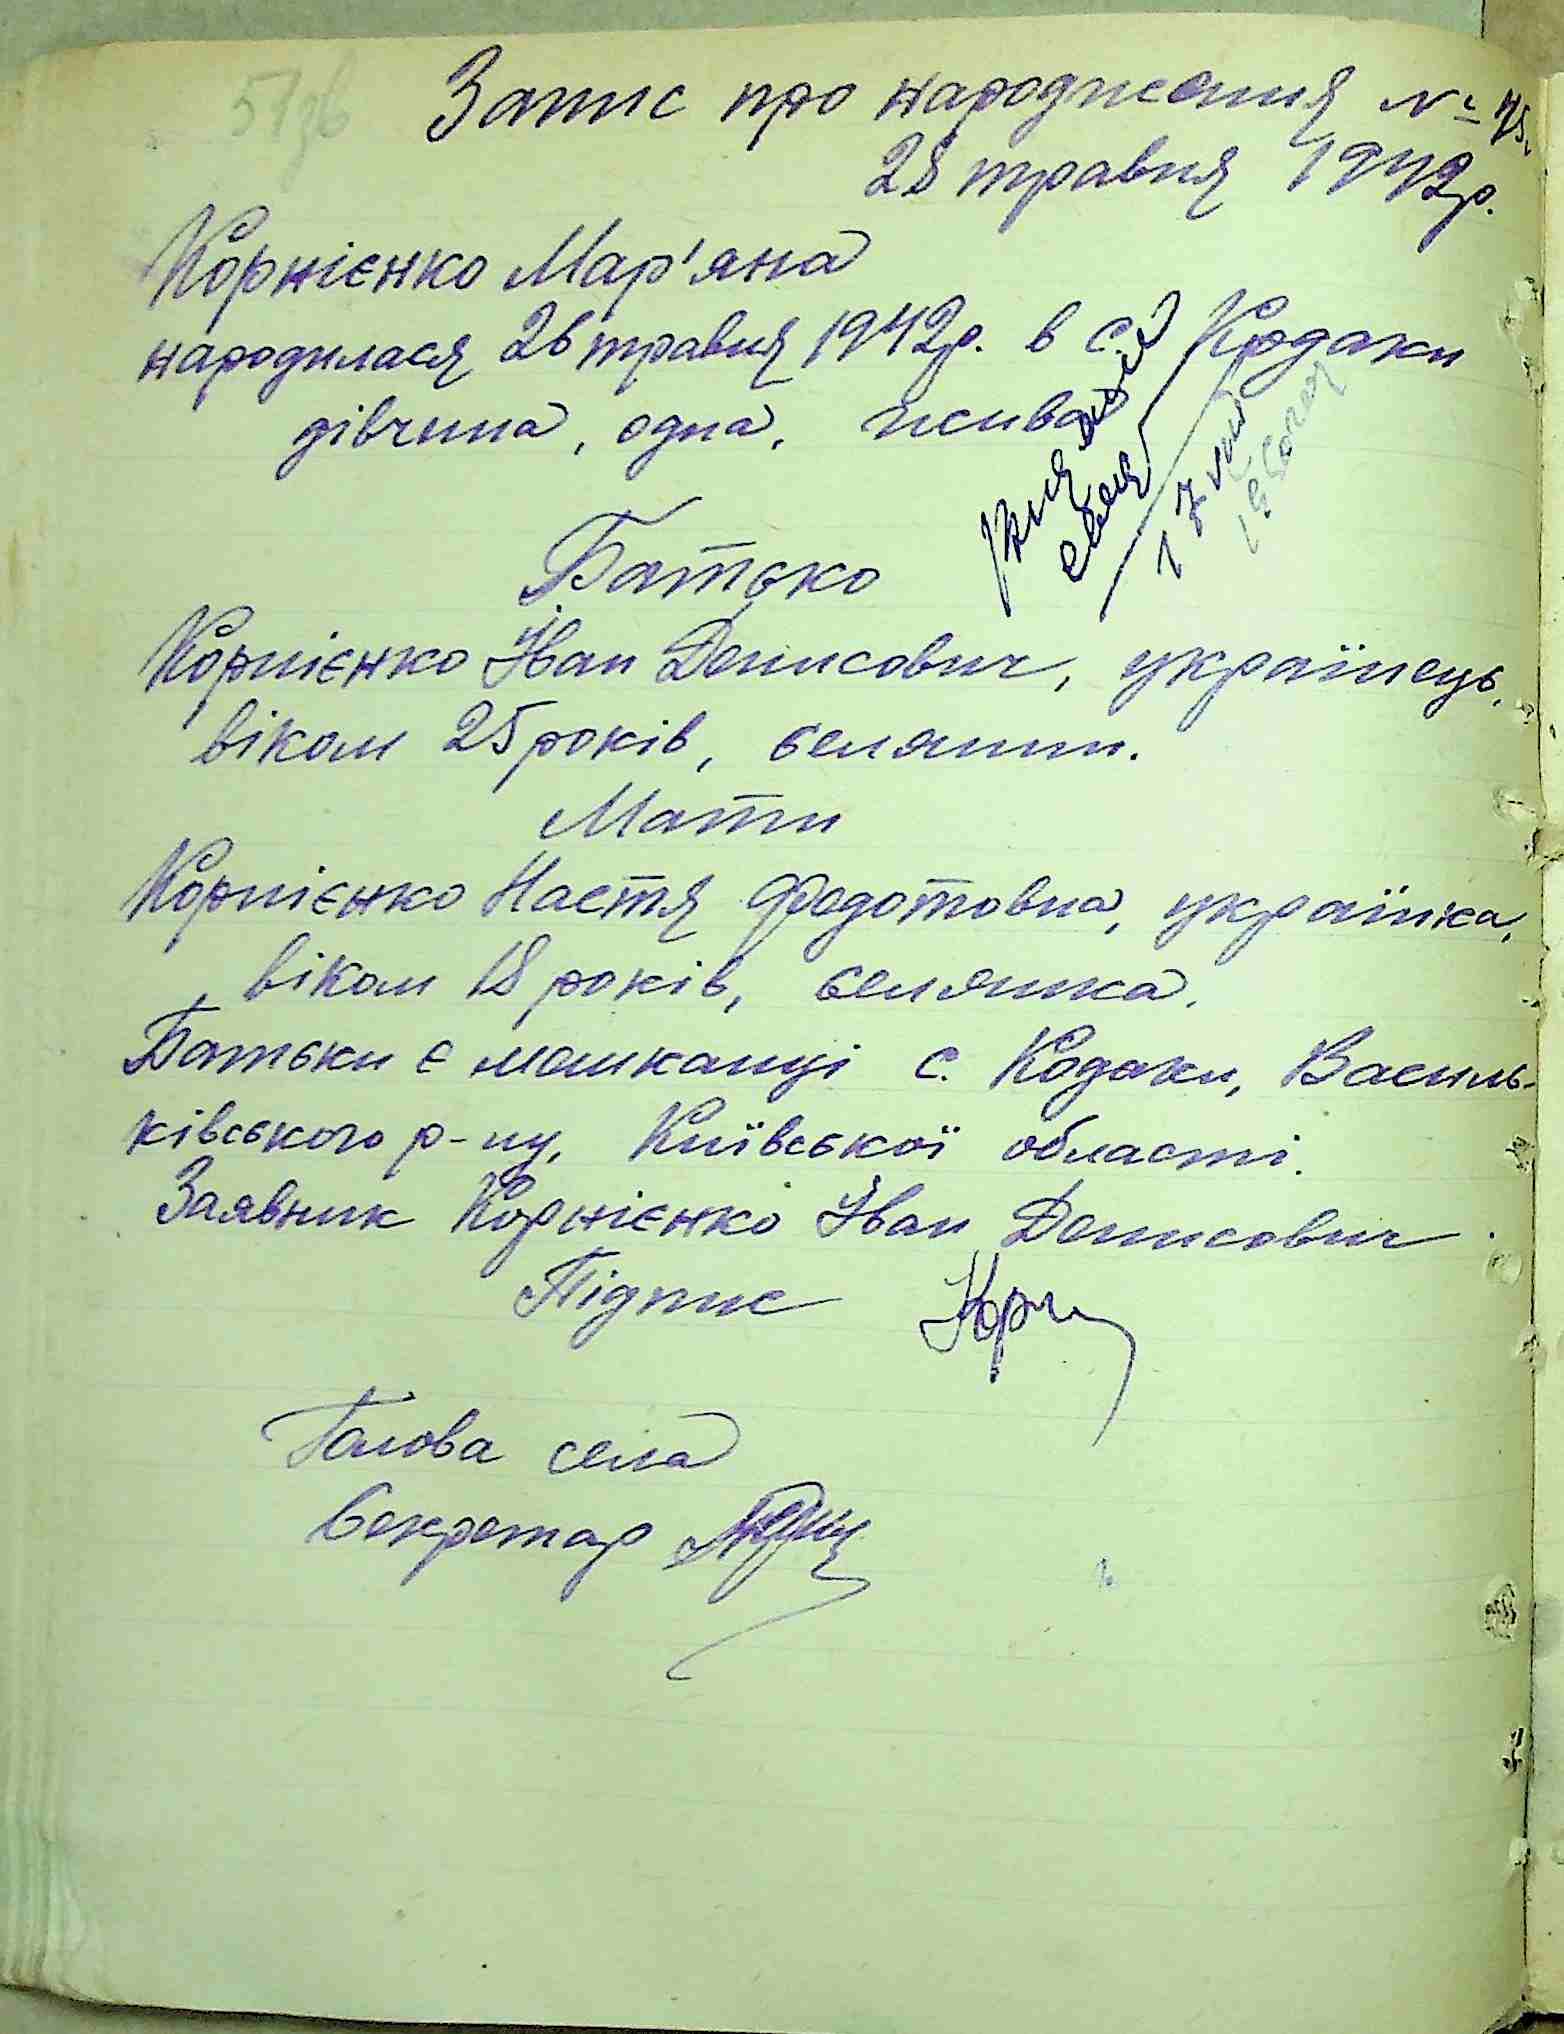 57зв
Запис про народження № 75.
28 травня 1942р.
Корнієнко Мар'яна
народилася 26 травня 1942р. в с. Кодаки
дівчина, одна, жива
Батько
Корнієнко Іван Денисович, українець,
віком 25 років, селянин.
Мати
Корнієнко Настя Федотовна, українка,
віком 18 років, селянка.
Батьки є мешканці с. Кодаки, Василь-
ківського р-ну, Київської області.
Заявник Корнієнко Іван Денисович.
Підпис Корн
Голова села
Секретар